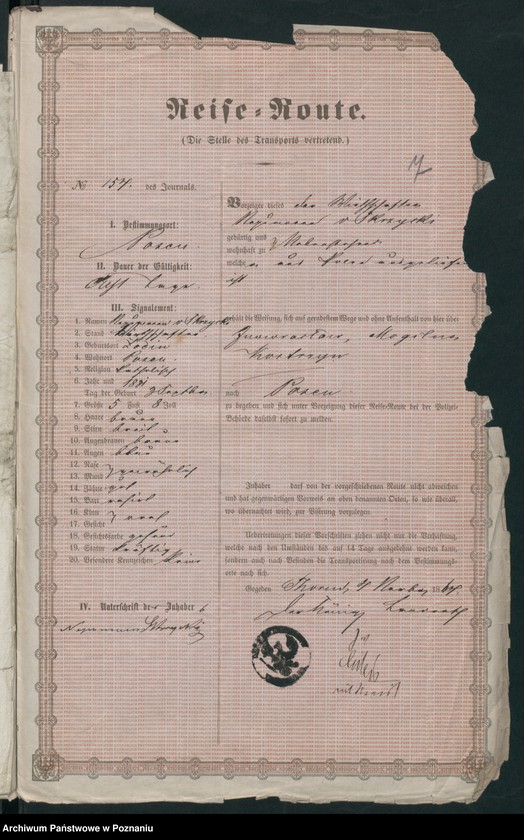 Reise-Route.
(Die Stelle des Transports vertretend.)
No 154. des Journals.
I. Bestimmungsort:
Posen.
II. Dauer der Gültigkeit:
Acht Tage.
III. Signalement:
1. Namen
2. Stand
3. Geburtsort
4. Wohnort Posen.
5. Religion katholisch
6. Jahr und
Tag der Geburt
7. Größe 5 Fuß 8 Zoll
8. Haare braun
9. Stirn breit
10. Augenbrauen braun
11. Augen blau
12. Nase
13. Mund gewöhnlich
14. Zähne gut
15. Bart rasirt
16. Kinn
17. Gesicht oval
18. Gesichtsfarbe gesund
19. Statur kräftig
20. Besondere Kennzeichen keine
IV. Unterschrift des Inhabers
Vorzeiger dieses der Wirthschafter
v Skrzycki
gebürtig und
wohnhaft zu
welcher aus Polen
ist
erhält die Weisung, sich auf geradestem Wege und ohne Aufenthalt von hier über
Inowraclaw, Mogilno
Kostrzyn
nach Posen
zu begeben und sich unter Vorzeigung dieser Reise-Route bei der Polizei-
Behörde daselbst sofort zu melden.
Inhaber darf von der vorgeschriebenen Route nicht abweichen
und hat gegenwärtigen Ausweis an oben benannten Orten, so wie überall,
wo übernachtet wird, zur Visirung vorzulegen.
Uebertretungen dieser Vorschriften ziehen nicht nur die Verhaftung,
welche nach den Umständen bis auf 14 Tage ausgedehnt werden kann,
sondern auch nach Befinden die Transportirung nach dem Bestimmungs-
orte nach sich.
Gegeben Thorn, 1864.
Der König. Landrath
Archiwum Państwowe w Poznaniu